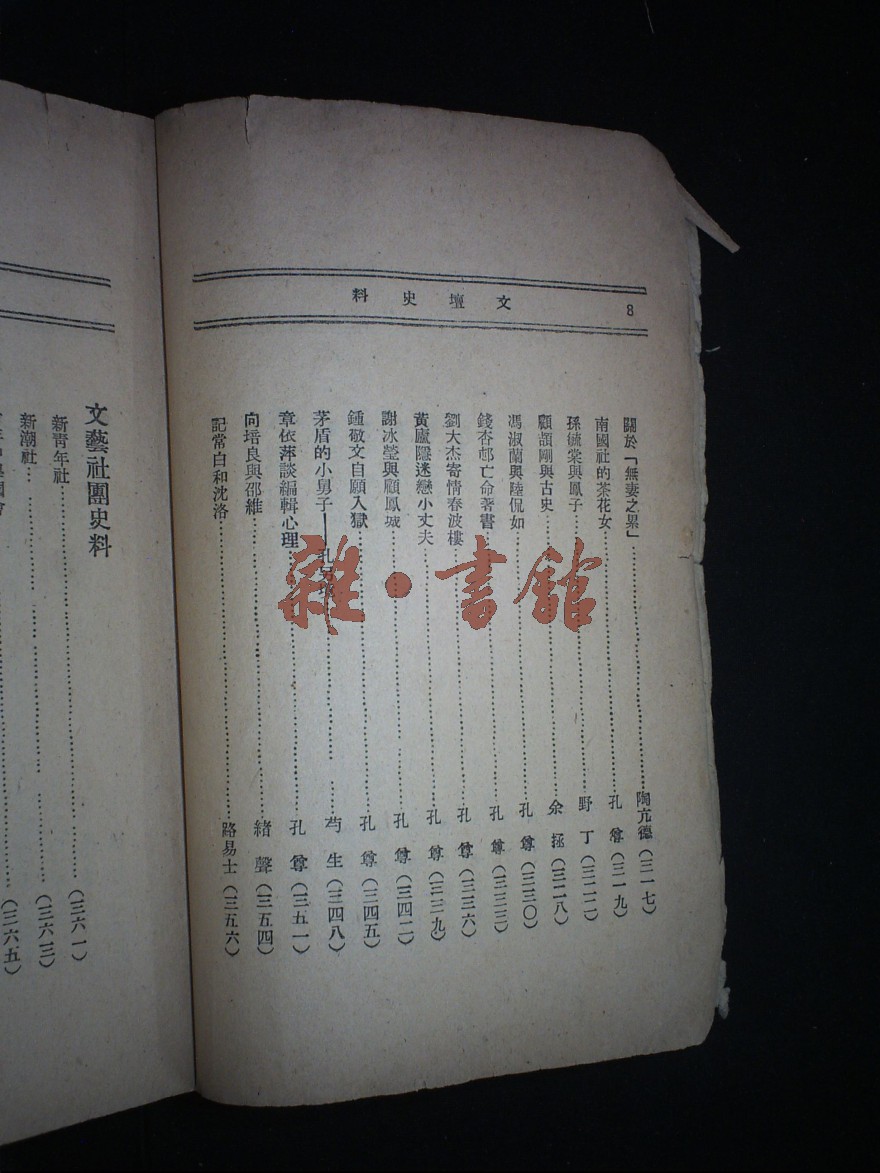 文壇史料
8
關於「無妻之累」 陶亢德（三一七）
南國社的茶花女 孔尊（三一九）
孫毓棠與鳳子 野丁（三二二）
顧頡剛與古史 余拯（三二八）
馮淑蘭與陸侃如 孔尊（三三〇）
錢杏邨亡命著書 孔尊（三三三）
劉大杰寄情春波樓 孔尊（三三六）
黃廬隱迷戀小丈夫 孔尊（三三九）
謝冰瑩與顧鳳城 孔尊（三四二）
鍾敬文自願入獄 孔尊（三四五）
茅盾的小男子——孔另境 芍生（三四八）
章依萍談編輯心理 孔尊（三五一）
向培良與邵維 緒聲（三五四）
記常白和沈洛 路易士（三五六）
文藝社團史料
新青年社（三六一）
新潮社（三六三）
（三六五）
雜·書館